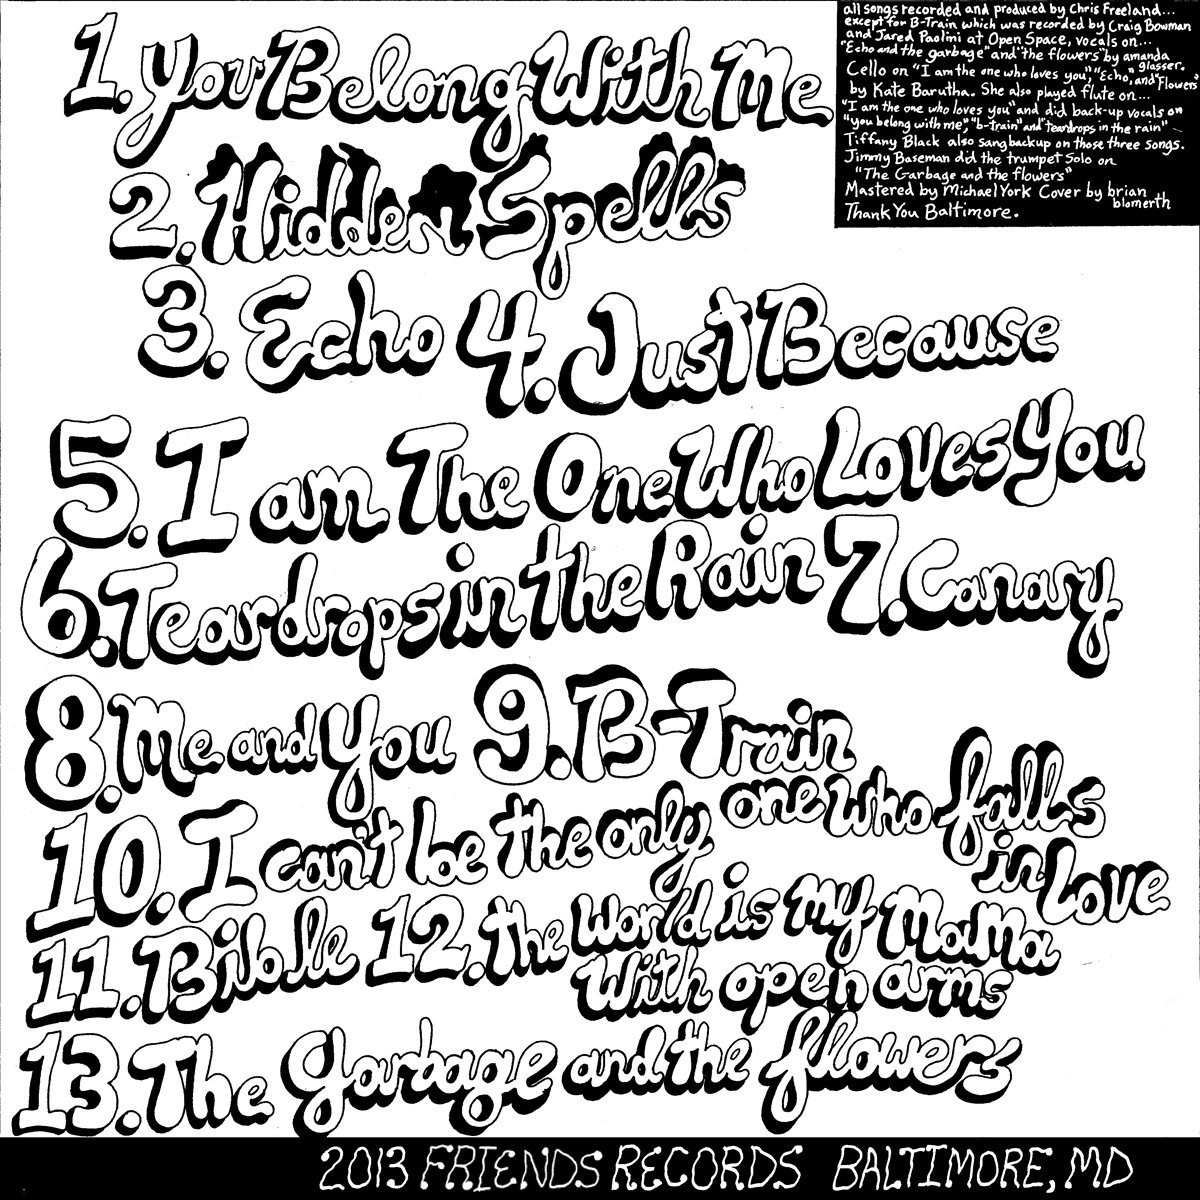 1. You Belong With Me
2. Hidden Spells
3. Echo 4. Just Because
5. I am The One Who Loves You
6. Teardrops in the Rain 7. Canary
8. Me and You 9. B-Train
10. I can't be the only one who falls
in Love
11. Bible 12. the World is my MaMa
With open arms
13. The garbage and the flowers
all songs recorded and produced by Chris Freeland...
except for B-Train which was recorded by Craig Bowman
and Jared Paolini at Open Space, vocals on...
"Echo and the garbage" and "the flowers" by amanda
glasser.
Cello on "I am the one who loves you," "Echo," and "Flowers
by Kate Barutha. She also played flute on...
"I am the one who loves you" and did back-up vocals on
"you belong with me", "b-train" and "teardrops in the rain"
Tiffany Black also sang backup on those three songs.
Jimmy Baseman did the trumpet solo on
"The Garbage and the flowers"
Mastered by Michael York Cover by brian
blomerth
Thank You Baltimore.
2013 FRIENDS RECORDS BALTIMORE, MD